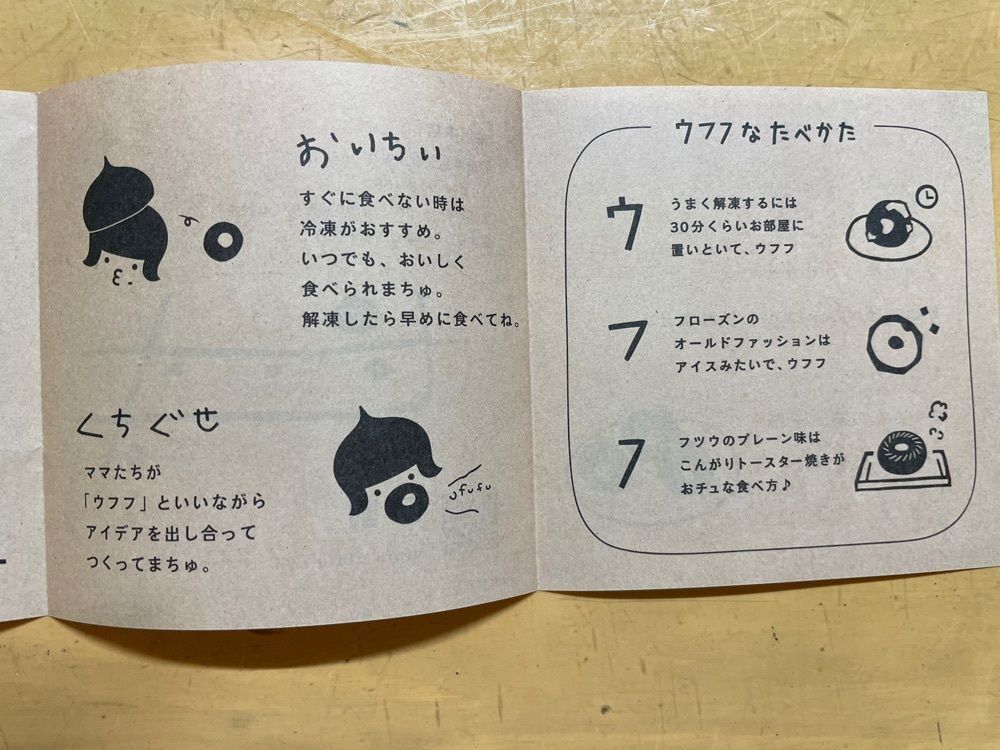 おいちぃ
すぐに食べない時は
冷凍がおすすめ。
いつでも、おいしく
食べられまちゅ。
解凍したら早めに食べてね。
くちぐせ
ママたちが
「ウフフ」といいながら
アイデアを出し合って
つくってまちゅ。
ufufu
ウフフなたべかた
ウ
うまく解凍するには
30分くらいお部屋に
置いといて、ウフフ
フ
フローズンの
オールドファッションは
アイスみたいで、ウフフ
フ
フツウのプレーン味は
こんがりトースター焼きが
おチュな食べ方♪